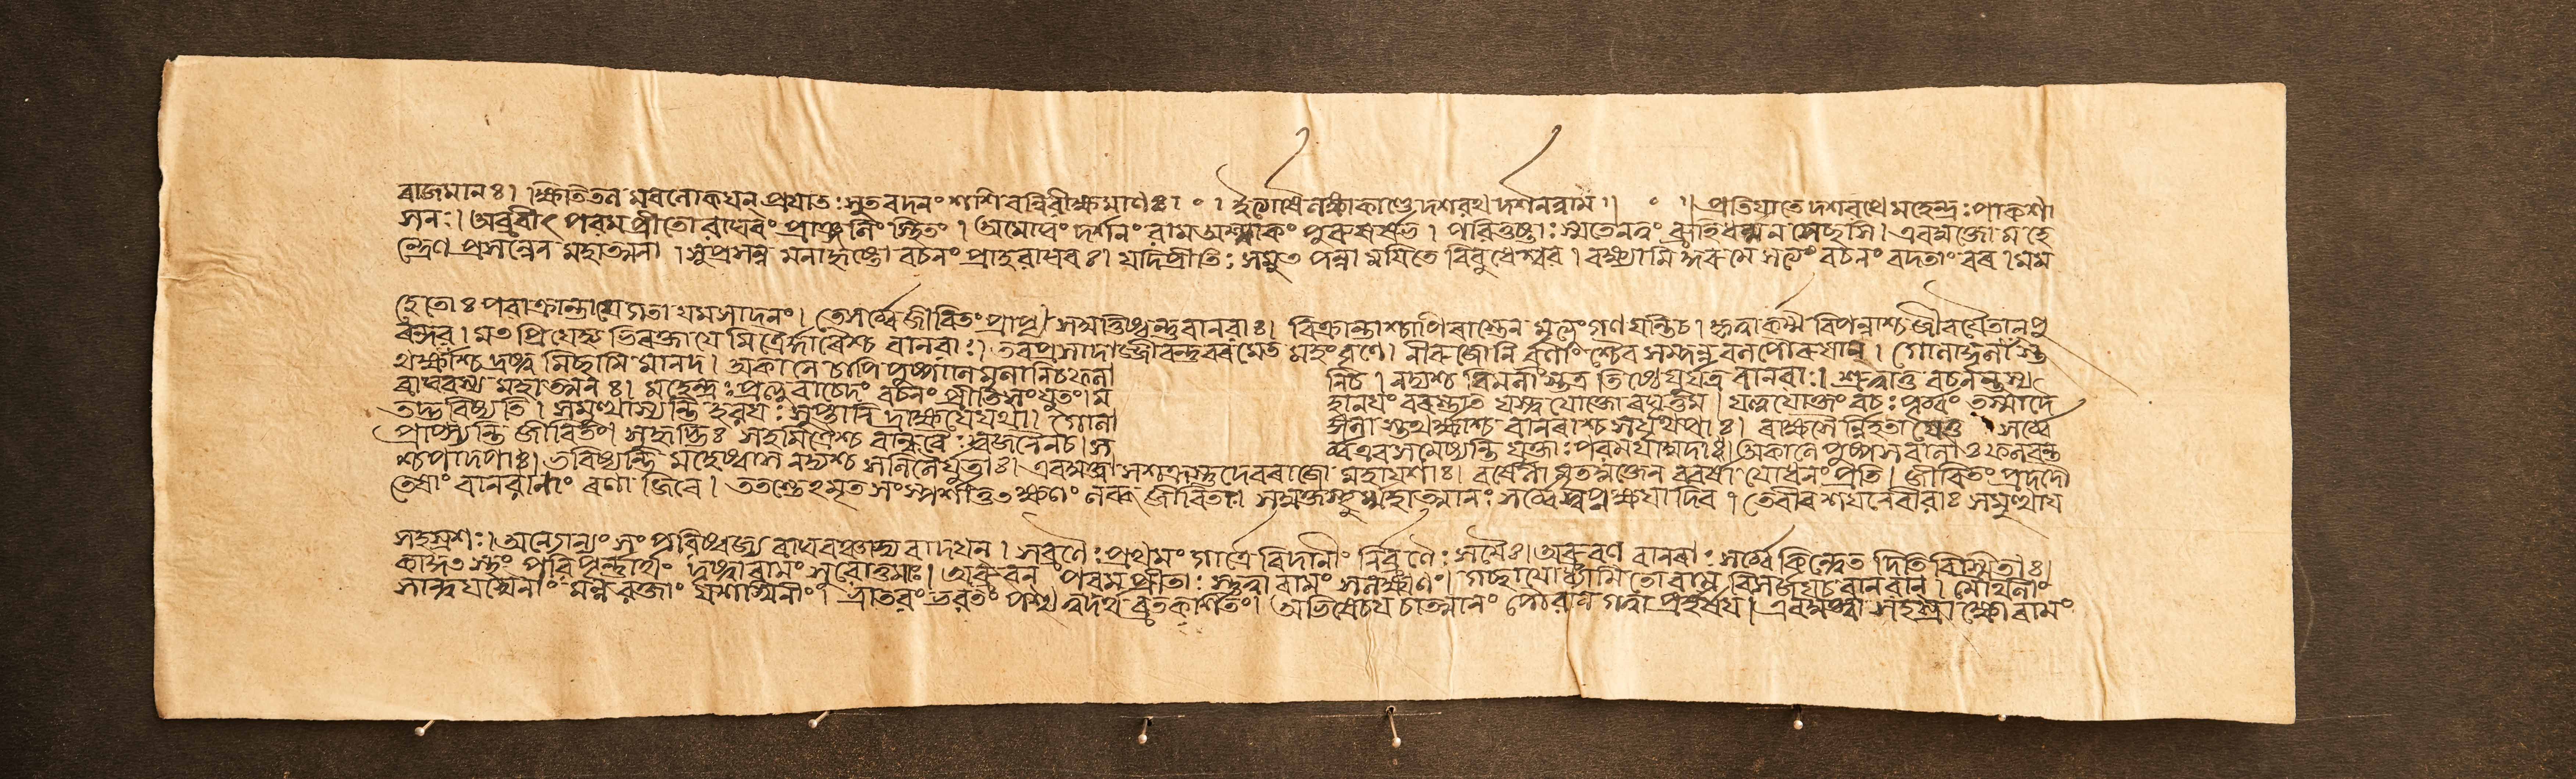 ৰাজমানঃ। ক্ষিতিতল মবলোকযন্ প্রযাতঃ সুত বদনং শশি বন্নিৰীক্ষমাণঃ॥ ০ । ইত্যার্ষে লঙ্কাকাণ্ডে দশৰথ দর্শনন্নাম॥ ০ ॥ প্রতিযাতে দশৰথে মহেন্দ্রঃ পাকশা
সনঃ। অব্রবীৎ পৰম প্রীতো ৰাঘবং প্রাঞ্জলিং স্থিতং। অমোঘং দর্শনং ৰাম অস্মাকং পুৰুষর্ষভ। পৰিতুষ্টাঃ স্মতেনত্বং ব্রূহি যন্মন সেচ্ছসি। এবমুক্তো মহে
ন্দ্রেণ প্রসন্নেন মহাত্মনা। সুপ্রসন্ন মনাহৃষ্টো বচনং প্রাহ ৰাঘবঃ। যদি প্রীতিঃ সমুৎ পন্না মযিতে বিবুধেশ্বৰ। বক্ষ্যামি কুৰুমে সত্যং বচনং বদতাং বৰ। মম
হেতোঃ পৰাক্রান্তা যে গতা যমসাদনং। তেসর্ব্বে জীবিতং প্রাপ্য সমুত্তিষ্ঠন্তু বানৰাঃ। বিক্রান্তাশ্চাপি শূৰাস্তেন মৃত্যুং গণযন্তিচ। কৃত্বাকর্ম্ম বিপন্নাশ্চ জীবযৈতান্ পু
ৰন্দৰ। মত প্রিযেষ্ব ভিৰক্তা যে মিত্রের্দ্দাৰৈশ্চ বানৰাঃ। তবপ্রসাদা জ্জীবন্তু বৰমেত মহং বৃণে। নীৰুজো নি র্ব্রণাংশ্চৈব সম্পন্ন বলপৌৰুষান্। গোলাঙ্গূলাংস্ত
থর্ক্ষাংশ্চ দ্রষ্টু মিচ্ছামি মানদ। অকালে চাপি পুষ্পাণি মূলানিচফলা নিচ। নদ্যশ্চ বিমলাস্তত্র তিষ্ঠেযুর্যত্র বানৰাঃ। শ্রুত্বাতু বচনন্তস্য
ৰাঘবস্য মহাত্মনঃ। মহেন্দ্রঃ প্রত্যুবাচেদং বচনং প্রীতিসংযুতং। ম হানযং বৰস্তাত যস্ত্ব যোক্তো ৰঘূত্তম। যত্ত্বযোক্তং বচঃ পূর্ব্বং তস্মাদে
তদ্ভবিষ্যতি। সমুত্থাস্যন্তি হৰযঃ সুপ্তানি দ্রাক্ষযেযথা। গোলা ঙ্গূলা স্তথর্ক্ষাশ্চ বানৰাশ্চ সযূথপাঃ। ৰাক্ষসৈ র্নিহতা যেতু সর্ব্বে
প্রাপ্স্যন্তি জীবিতং। সুহৃদ্ভিঃ সহমিত্রৈশ্চ বান্ধবৈঃ স্বজনেনচ। স র্ব্বএব সমেষ্যন্তি যুক্তাঃ পৰমযামুদাঃ। অকালে পুষ্পসবলাঃ ফলবন্ত
শ্চপাদপাঃ। ভবিষ্যন্তি মহেষ্বাস নদ্যশ্চ সলিলৈর্যুতাঃ। এবমুক্ত্বা সশক্রস্তু দেবৰাজো মহাযশাঃ। বর্ষেণা মৃতযুক্তেন ববর্ষা যোধনং প্রতি। জীবিতং প্রদদৌ
তেষাং বানৰাণাং ৰণা জিৰে। ততস্তেহমৃত সংস্পর্শাত্তত ক্ষণং লব্ধ জীবিতাঃ। সমুত্তস্থুর্ম্মহাত্মানঃ সর্ব্বে স্বপ্ন ক্ষযাদিব। তেবীৰ শযনেবীৰাঃ সমুত্থায
সহস্রশঃ। অন্যোন্যং সং পৰিষ্বজ্য ৰাঘবঞ্চাভ্য বাদযন্। সব্রণৈঃ প্রথমং গাত্রৈ ৰিদানীং নির্ব্রণৈঃ সমৈঃ। অব্রুবণ বানৰাঃ সর্ব্বে কিন্ত্বেত দিতি বিস্মিতাঃ।
কাকুৎ স্থং পৰিপূর্ণার্থং দৃষ্ট্বাৰামং সুৰোত্তমাঃ। অব্রুবন্ পৰমপ্রীতাঃ স্তুত্বা ৰামং সলক্ষ্মণং। গচ্ছাযোধ্যামিতো ৰাম বিসর্জযচ বানৰান্। মৈথিলীং
সান্ত্বযস্বৈনাং মনুৰক্তাং যশস্বিনীং। ভ্রাতৰং ভৰতং পশ্য ত্বদর্থ ব্রতকর্শিতং। অভিষেচয চাত্মানং পৌৰান্ গত্বা প্রহর্ষয। এবমুক্ত্বা সহস্রাক্ষো ৰামং